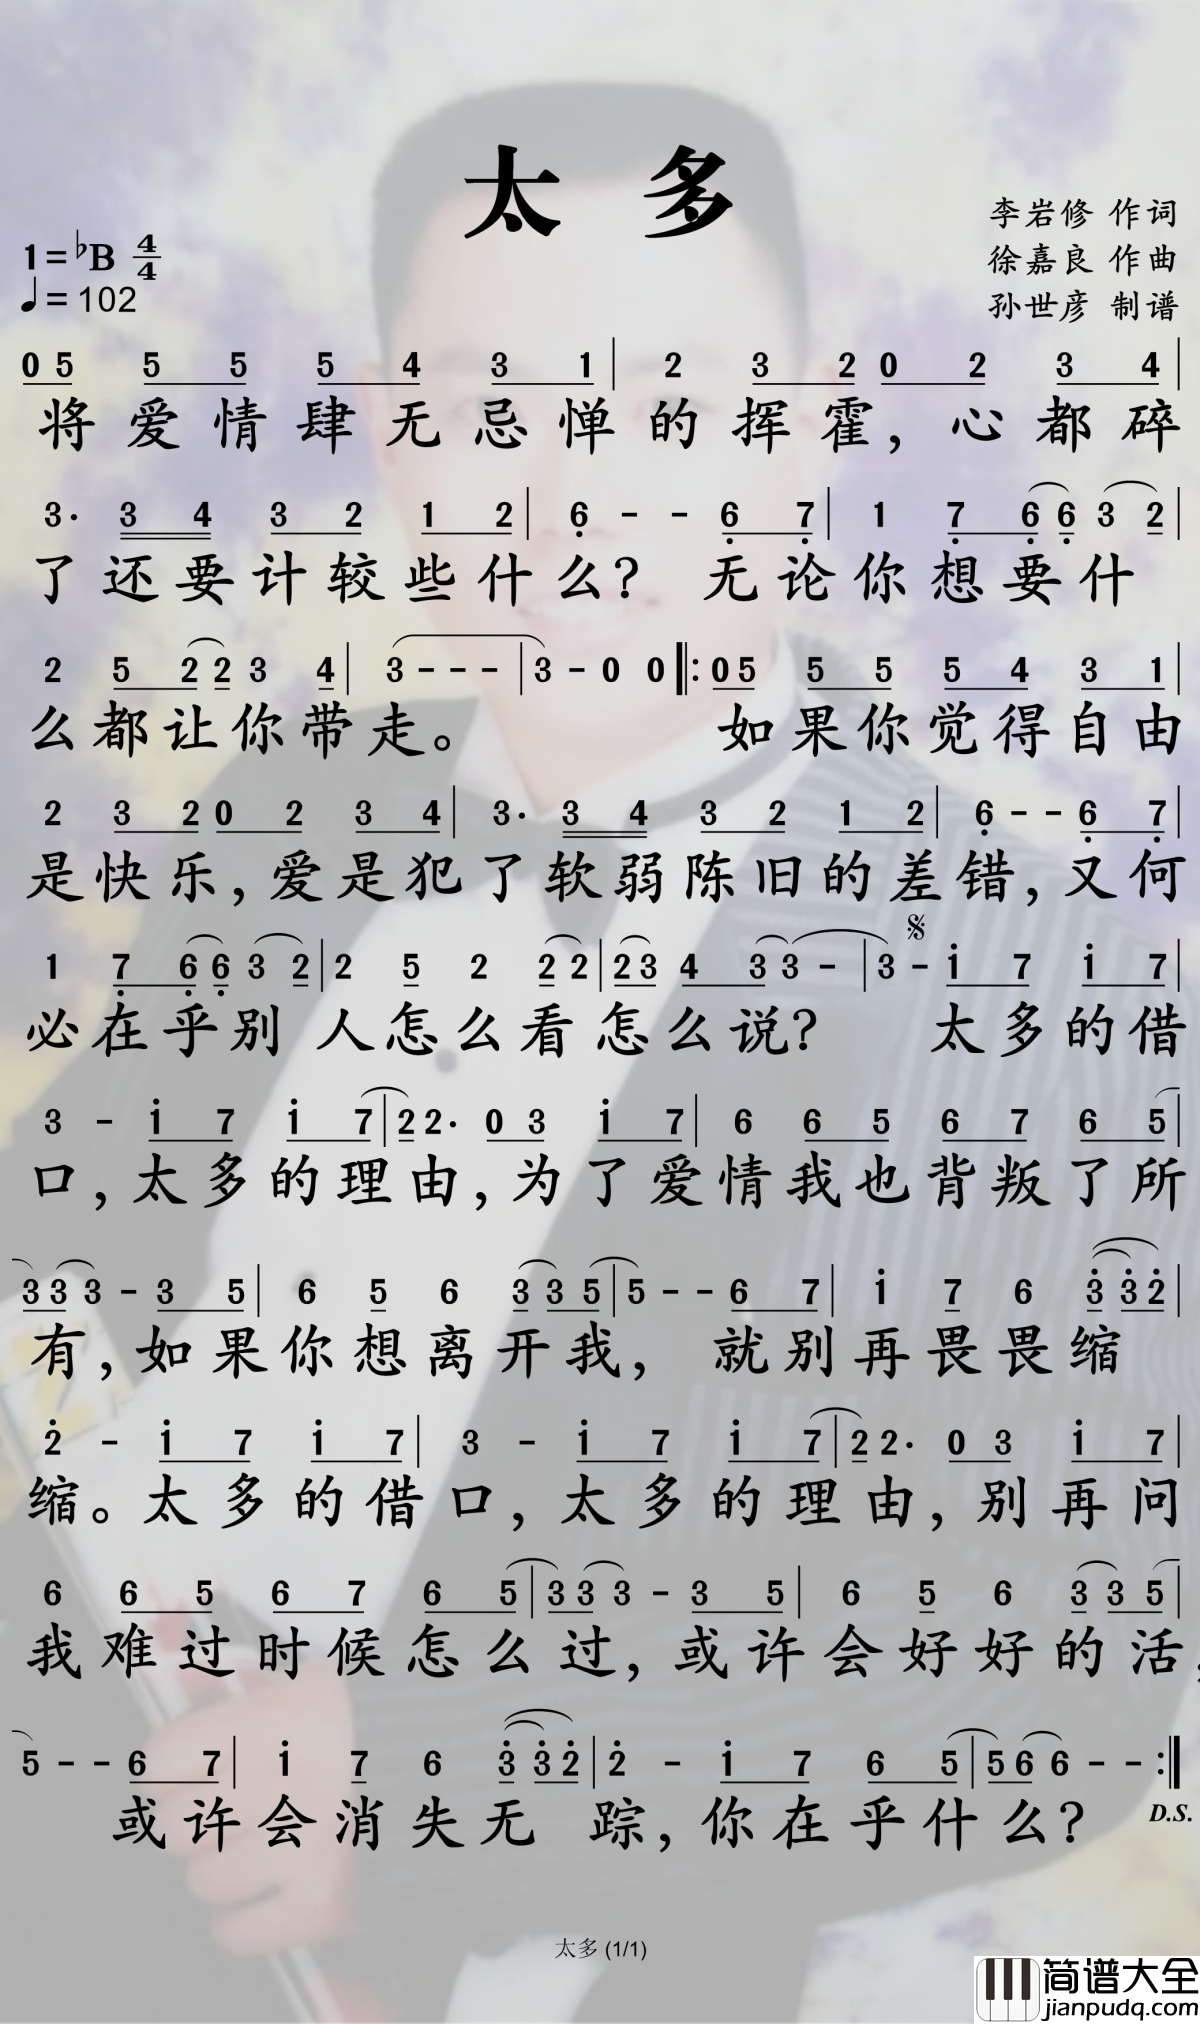 太 多
李岩修 作词
1=♭B 4/4
徐嘉良 作曲
♩= 102
孙世彦 制谱
0 5 5 5 5 4 3 1 | 2 3 2 0 2 3 4 |
将爱情肆无忌惮的挥霍，心都碎
3· 3 4 3 2 1 2 | 6̣ - - 6̣ 7̣ | 1 7̣ 6̣ 6̣ 3 2 |
了还要计较些什么？ 无论你想要什
2 5 2 2 3 4 | 3 - - - | 3 - 0 0 ‖: 0 5 5 5 5 4 3 1 |
么都让你带走。 如果你觉得自由
2 3 2 0 2 3 4 | 3· 3 4 3 2 1 2 | 6̣ - - 6̣ 7̣ |
是快乐，爱是犯了软弱陈旧的差错，又何
𝄋
1 7̣ 6̣ 6̣ 3 2 | 2 5 2 2 2 | 2 3 4 3 3 - | 3 - i 7 i 7 |
必在乎别 人怎么看怎么说？ 太多的借
3 - i 7 i 7 | 2 2· 0 3 i 7 | 6 6 5 6 7 6 5 |
口，太多的理由，为了爱情我也背叛了所
3 3 3 - 3 5 | 6 5 6 3 3 5 | 5 - - 6 7 | i 7 6 3̇ 3̇ 2̇ |
有，如果你想离开我， 就别再畏畏缩
2̇ - i 7 i 7 | 3 - i 7 i 7 | 2 2· 0 3 i 7 |
缩。太多的借口，太多的理由，别再问
6 6 5 6 7 6 5 | 3 3 3 - 3 5 | 6 5 6 3 3 5 |
我难过时候怎么过，或许会好好的活，
5 - - 6 7 | i 7 6 3̇ 3̇ 2̇ | 2̇ - i 7 6 5 | 5 6 6 - - :‖
或许会消失无 踪，你在乎什么？
D.S.
太多 (1/1)
简谱大全
jianpudq.com